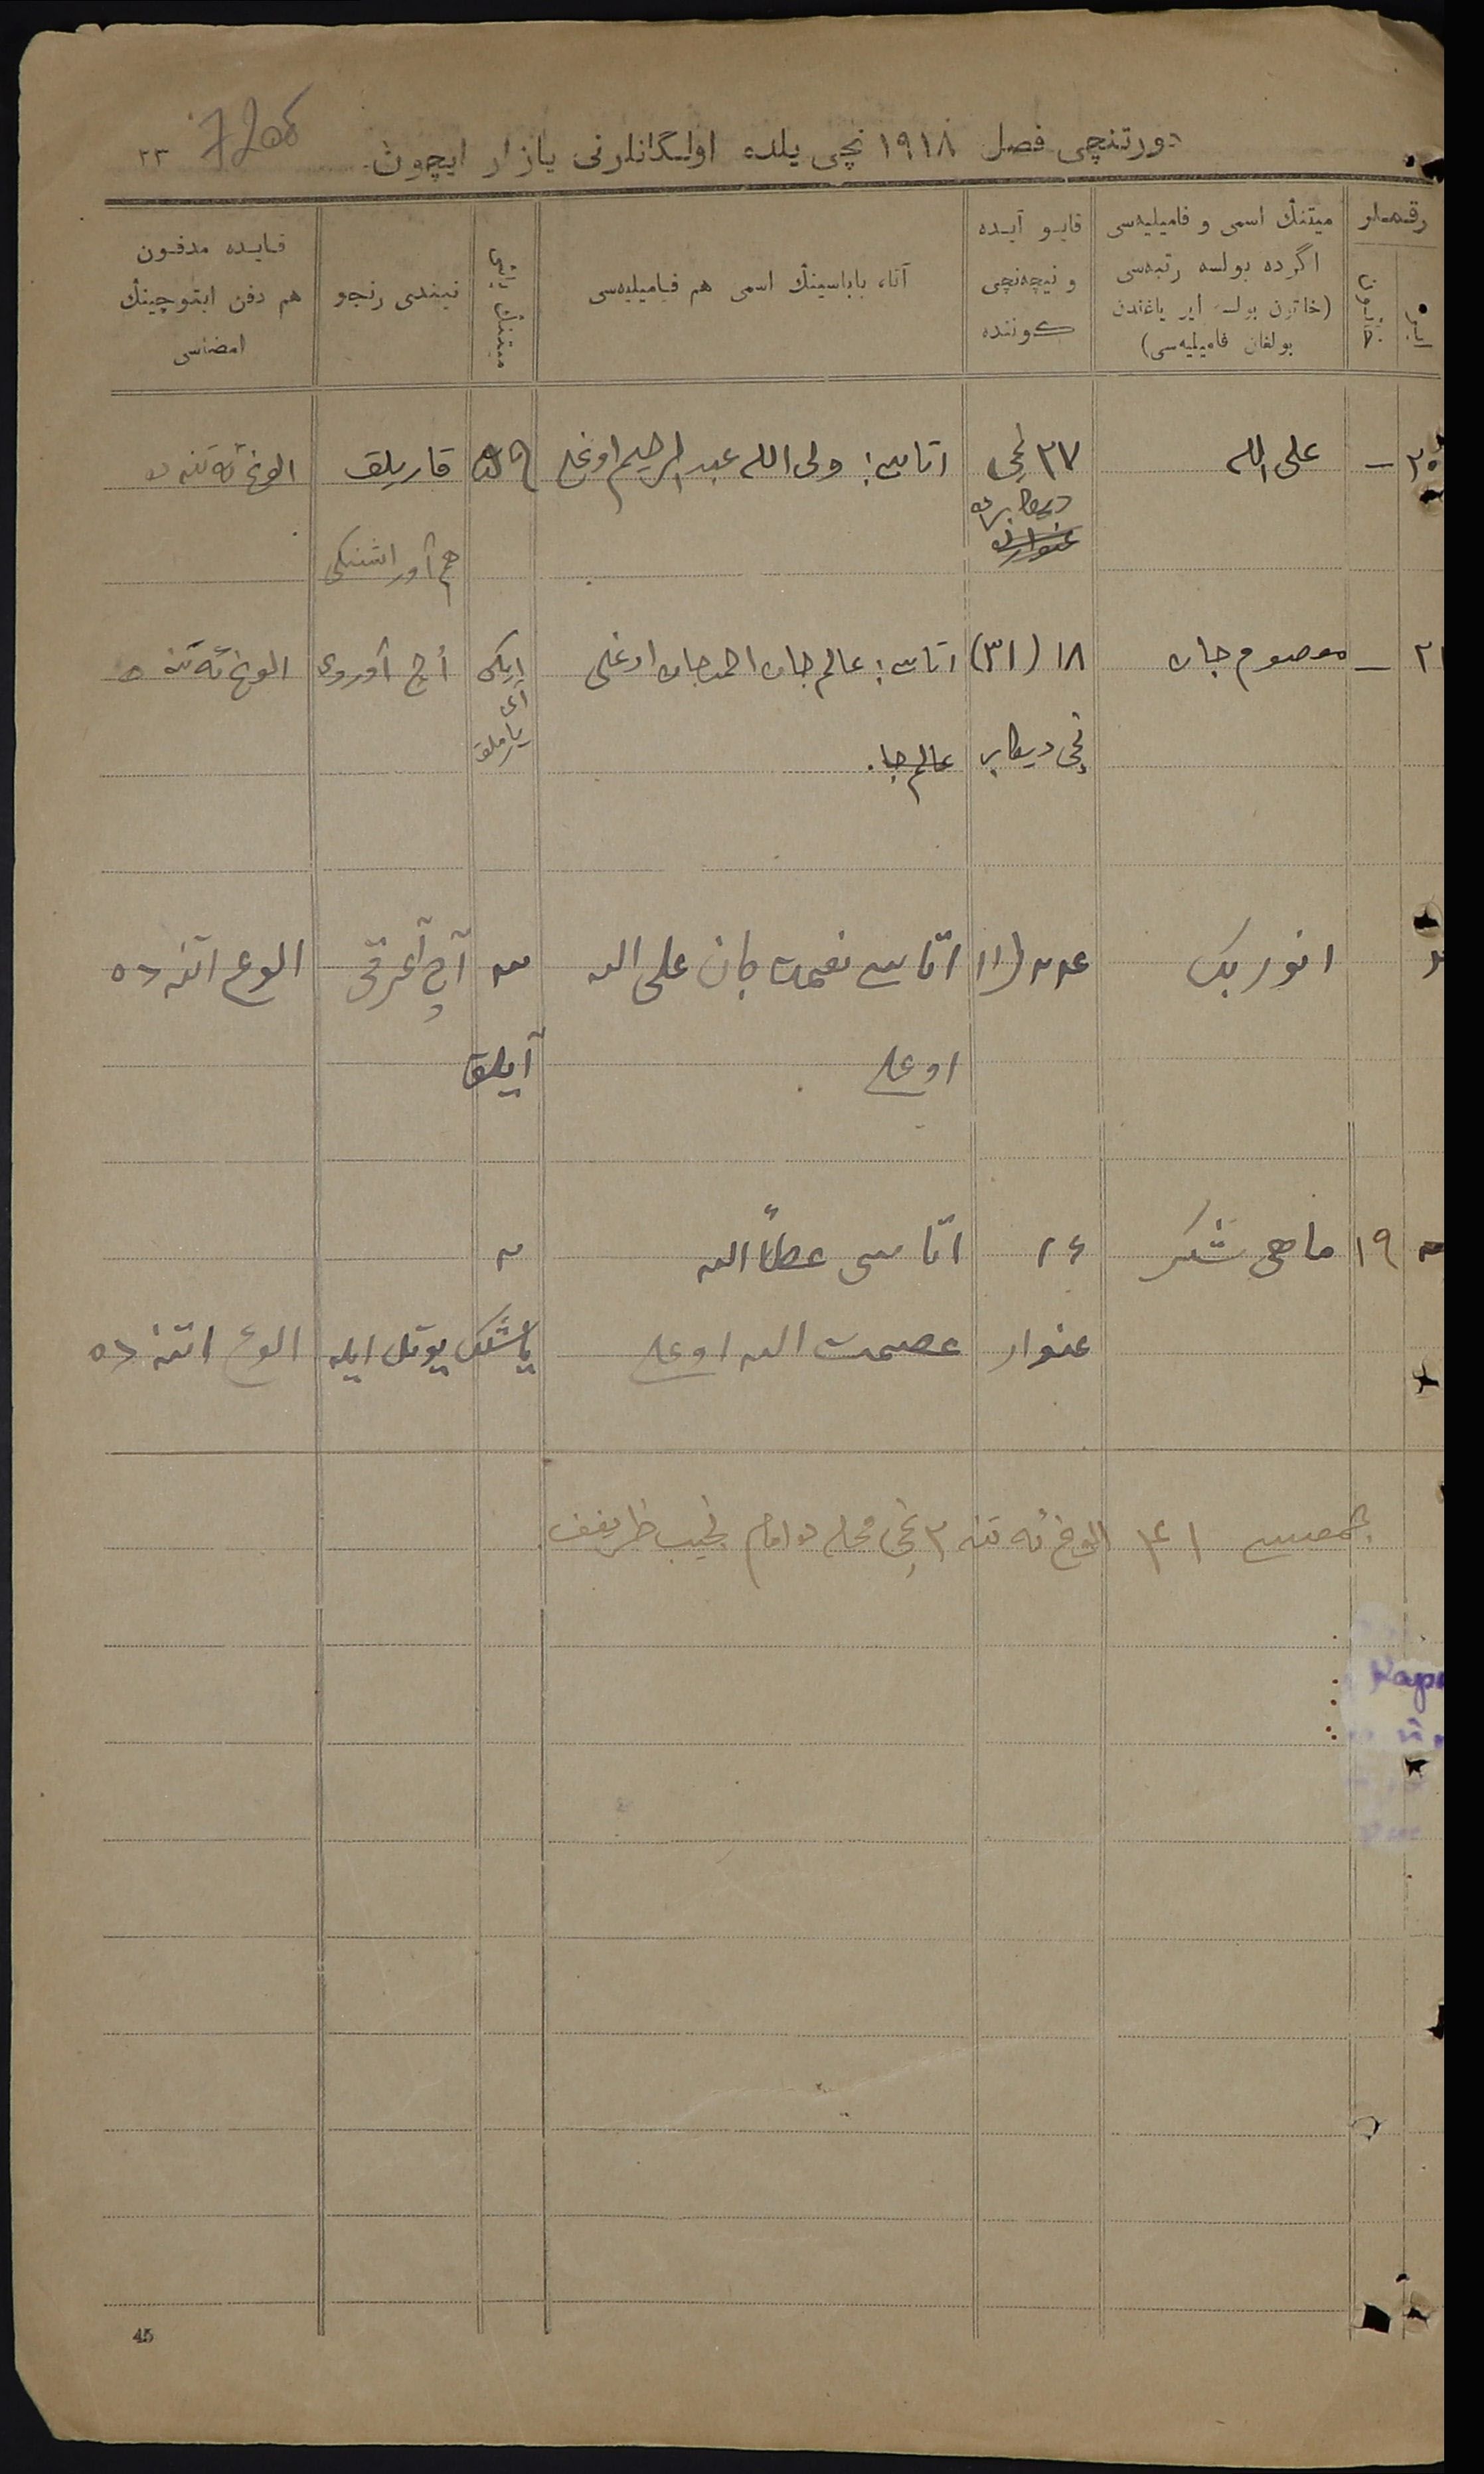 دورتنچی فصل ١٩١٨ نچی یلده اولگانلرنی یازار ایچون
٢٣
رقملر
میتنڭ اسمی و فامیلیه‌سی
اگرده بولسه رتبه‌سی
(خاتون بولسه ایر یاغندن
بولغان فامیلیه‌سی)
قایو آیده
و نیچه‌نچی
کوننده
آتا، باباسینڭ اسمی هم فامیلیه‌سی
میتنڭ یاشی
نیندی رنجو
قایده مدفون
هم دفن ایتوچینڭ
امضاسی
علی الله
٢٧ نچی
دیکابرده
اتاسی: ولی الله عبد الرحیم اوغلی
قاریلق
الوغ ئه‌تنه ده
معصوم جان
١٨ (٣١)
نچی دیکابر
اتاسی: عالم جان احمد جان اوغلی
عالم جا.
ایکی
آی
یارملق
أچ آوروی
الوغ ئه‌تنه ده
انور بک
اتاسی نعمت جان علی الله
اوغلی
آیلق
الوغ اتنه ده
١٩
ماهی شکر
٢٤
غنوار
اتاسی عطاء الله
عصمت الله اوغلی
یاشلک
یوتل ایله
الوغ اتنه ده
جمعسی ٤١ الوغ ئه‌تنه ٣ نچی محله ده امام نجیب ظریفف
Кар
45